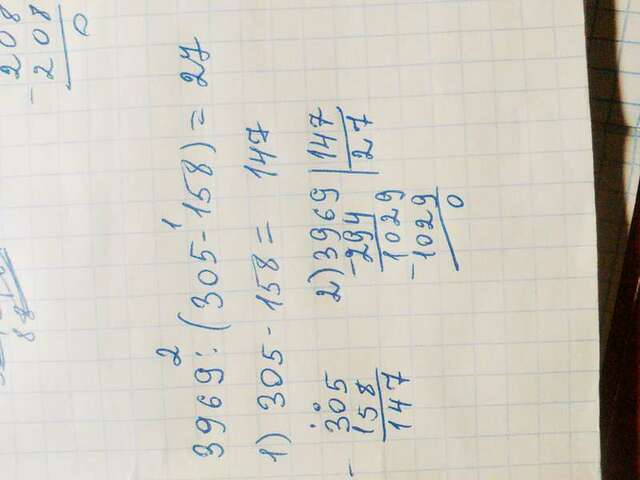 88
208
- 208
0
2 1
3969 : (305 - 158) = 27
1) 305 - 158 = 147
- 305
158
147
2) 3969 | 147
- 294 | 27
1029
- 1029
0